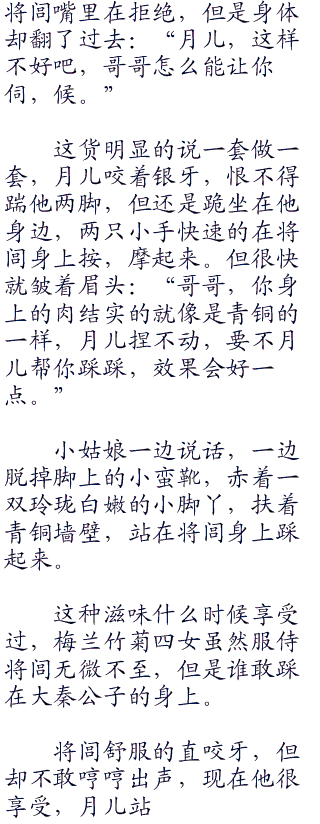 将闾嘴里在拒绝，但是身体
却翻了过去：“月儿，这样
不好吧，哥哥怎么能让你
伺，候。”
这货明显的说一套做一
套，月儿咬着银牙，恨不得
踹他两脚，但还是跪坐在他
身边，两只小手快速的在将
闾身上按，摩起来。但很快
就皱着眉头：“哥哥，你身
上的肉结实的就像是青铜的
一样，月儿捏不动，要不月
儿帮你踩踩，效果会好一
点。”
小姑娘一边说话，一边
脱掉脚上的小蛮靴，赤着一
双玲珑白嫩的小脚丫，扶着
青铜墙壁，站在将闾身上踩
起来。
这种滋味什么时候享受
过，梅兰竹菊四女虽然服侍
将闾无微不至，但是谁敢踩
在大秦公子的身上。
将闾舒服的直咬牙，但
却不敢哼哼出声，现在他很
享受，月儿站